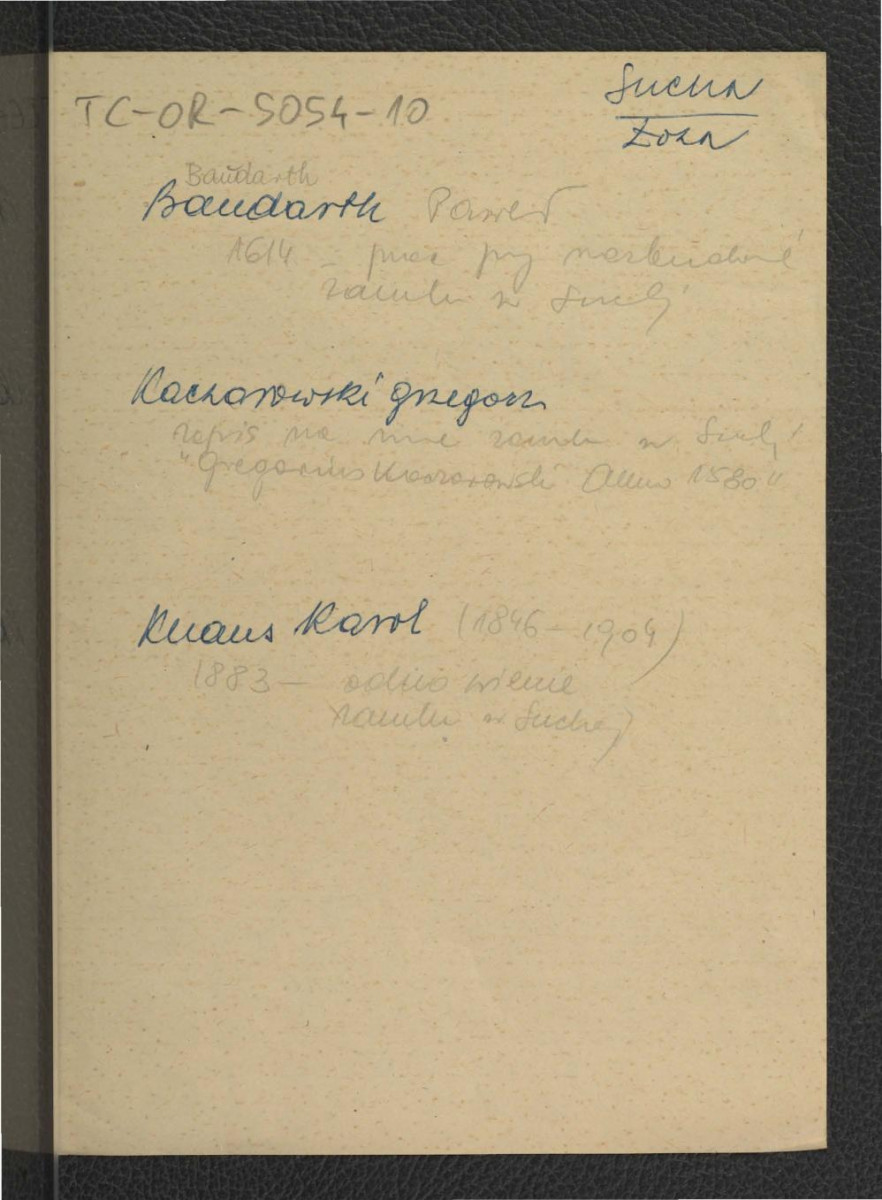 TC-OR-5054-10
SUCHA
Baudarth
Baudarth Paweł
1614 – prac przy rozbudowie
zamku w Suchej
Kaczarowski Grzegorz
zapis na murze zamku w Suchej
"Gregorius Kaczarowski Anno 1580"
Knaus Karol (1846-1904)
1883 – odnowienie
zamku w Suchej